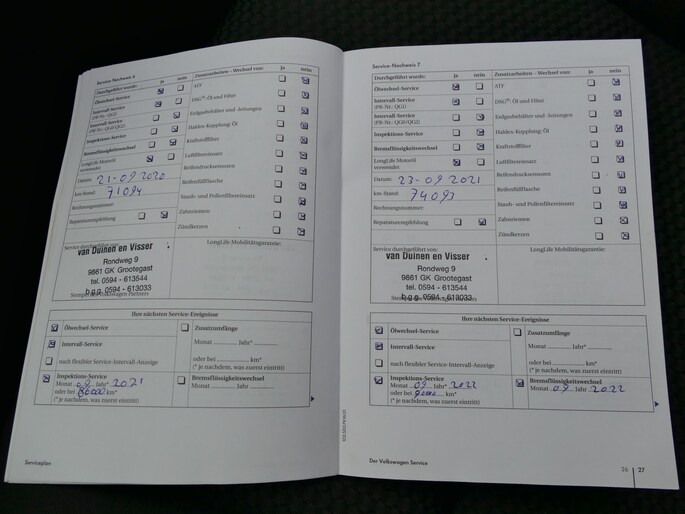 Service-Nachweis 6
Durchgeführt wurde: ja nein
Ölwechsel-Service
Intervall-Service
(PR-Nr.: QG1)
Intervall-Service
(PR-Nr.: QG0/QG2)
Inspektions-Service
Bremsflüssigkeitswechsel
LongLife Motoröl
verwendet
Datum: 21-09-2020
km-Stand: 71094
Rechnungsnummer:
Reparaturempfehlung
Zusatzarbeiten - Wechsel von: ja nein
ATF
DSG®-Öl und Filter
Erdgasbehälter und -leitungen
Haldex-Kupplung: Öl
Kraftstofffilter
Luftfiltereinsatz
Reifendrucksensoren
Reifenfüllflasche
Staub- und Pollenfiltereinsatz
Zahnriemen
Zündkerzen
Service durchgeführt von:
van Duinen en Visser
Rondweg 9
9861 GK Grootegast
tel. 0594 - 613544
b.g.g. 0594 - 613033
Stempel des Volkswagen Partners
LongLife Mobilitätsgarantie:
Ihre nächsten Service-Ereignisse
Ölwechsel-Service
Intervall-Service
nach flexibler Service-Intervall-Anzeige
Inspektions-Service
Monat 09 Jahr* 2021
oder bei km*
(* je nachdem, was zuerst eintritt)
Zusatzumfänge
Monat Jahr*
oder bei km*
(* je nachdem, was zuerst eintritt)
Bremsflüssigkeitswechsel
Monat Jahr
Serviceplan
Service-Nachweis 7
Durchgeführt wurde: ja nein
Ölwechsel-Service
Intervall-Service
(PR-Nr.: QG1)
Intervall-Service
(PR-Nr.: QG0/QG2)
Inspektions-Service
Bremsflüssigkeitswechsel
LongLife Motoröl
verwendet
Datum: 23-09-2021
km-Stand: 74093
Rechnungsnummer:
Reparaturempfehlung
Zusatzarbeiten - Wechsel von: ja nein
ATF
DSG®-Öl und Filter
Erdgasbehälter und -leitungen
Haldex-Kupplung: Öl
Kraftstofffilter
Luftfiltereinsatz
Reifendrucksensoren
Reifenfüllflasche
Staub- und Pollenfiltereinsatz
Zahnriemen
Zündkerzen
Service durchgeführt von:
van Duinen en Visser
Rondweg 9
9861 GK Grootegast
tel. 0594 - 613544
b.g.g. 0594 - 613033
Stempel des Volkswagen Partners
LongLife Mobilitätsgarantie:
Ihre nächsten Service-Ereignisse
Ölwechsel-Service
Intervall-Service
nach flexibler Service-Intervall-Anzeige
Inspektions-Service
Monat 09 Jahr* 2022
oder bei km*
(* je nachdem, was zuerst eintritt)
Zusatzumfänge
Monat Jahr*
oder bei km*
(* je nachdem, was zuerst eintritt)
Bremsflüssigkeitswechsel
Monat 09 Jahr 2022
Der Volkswagen Service
26 27